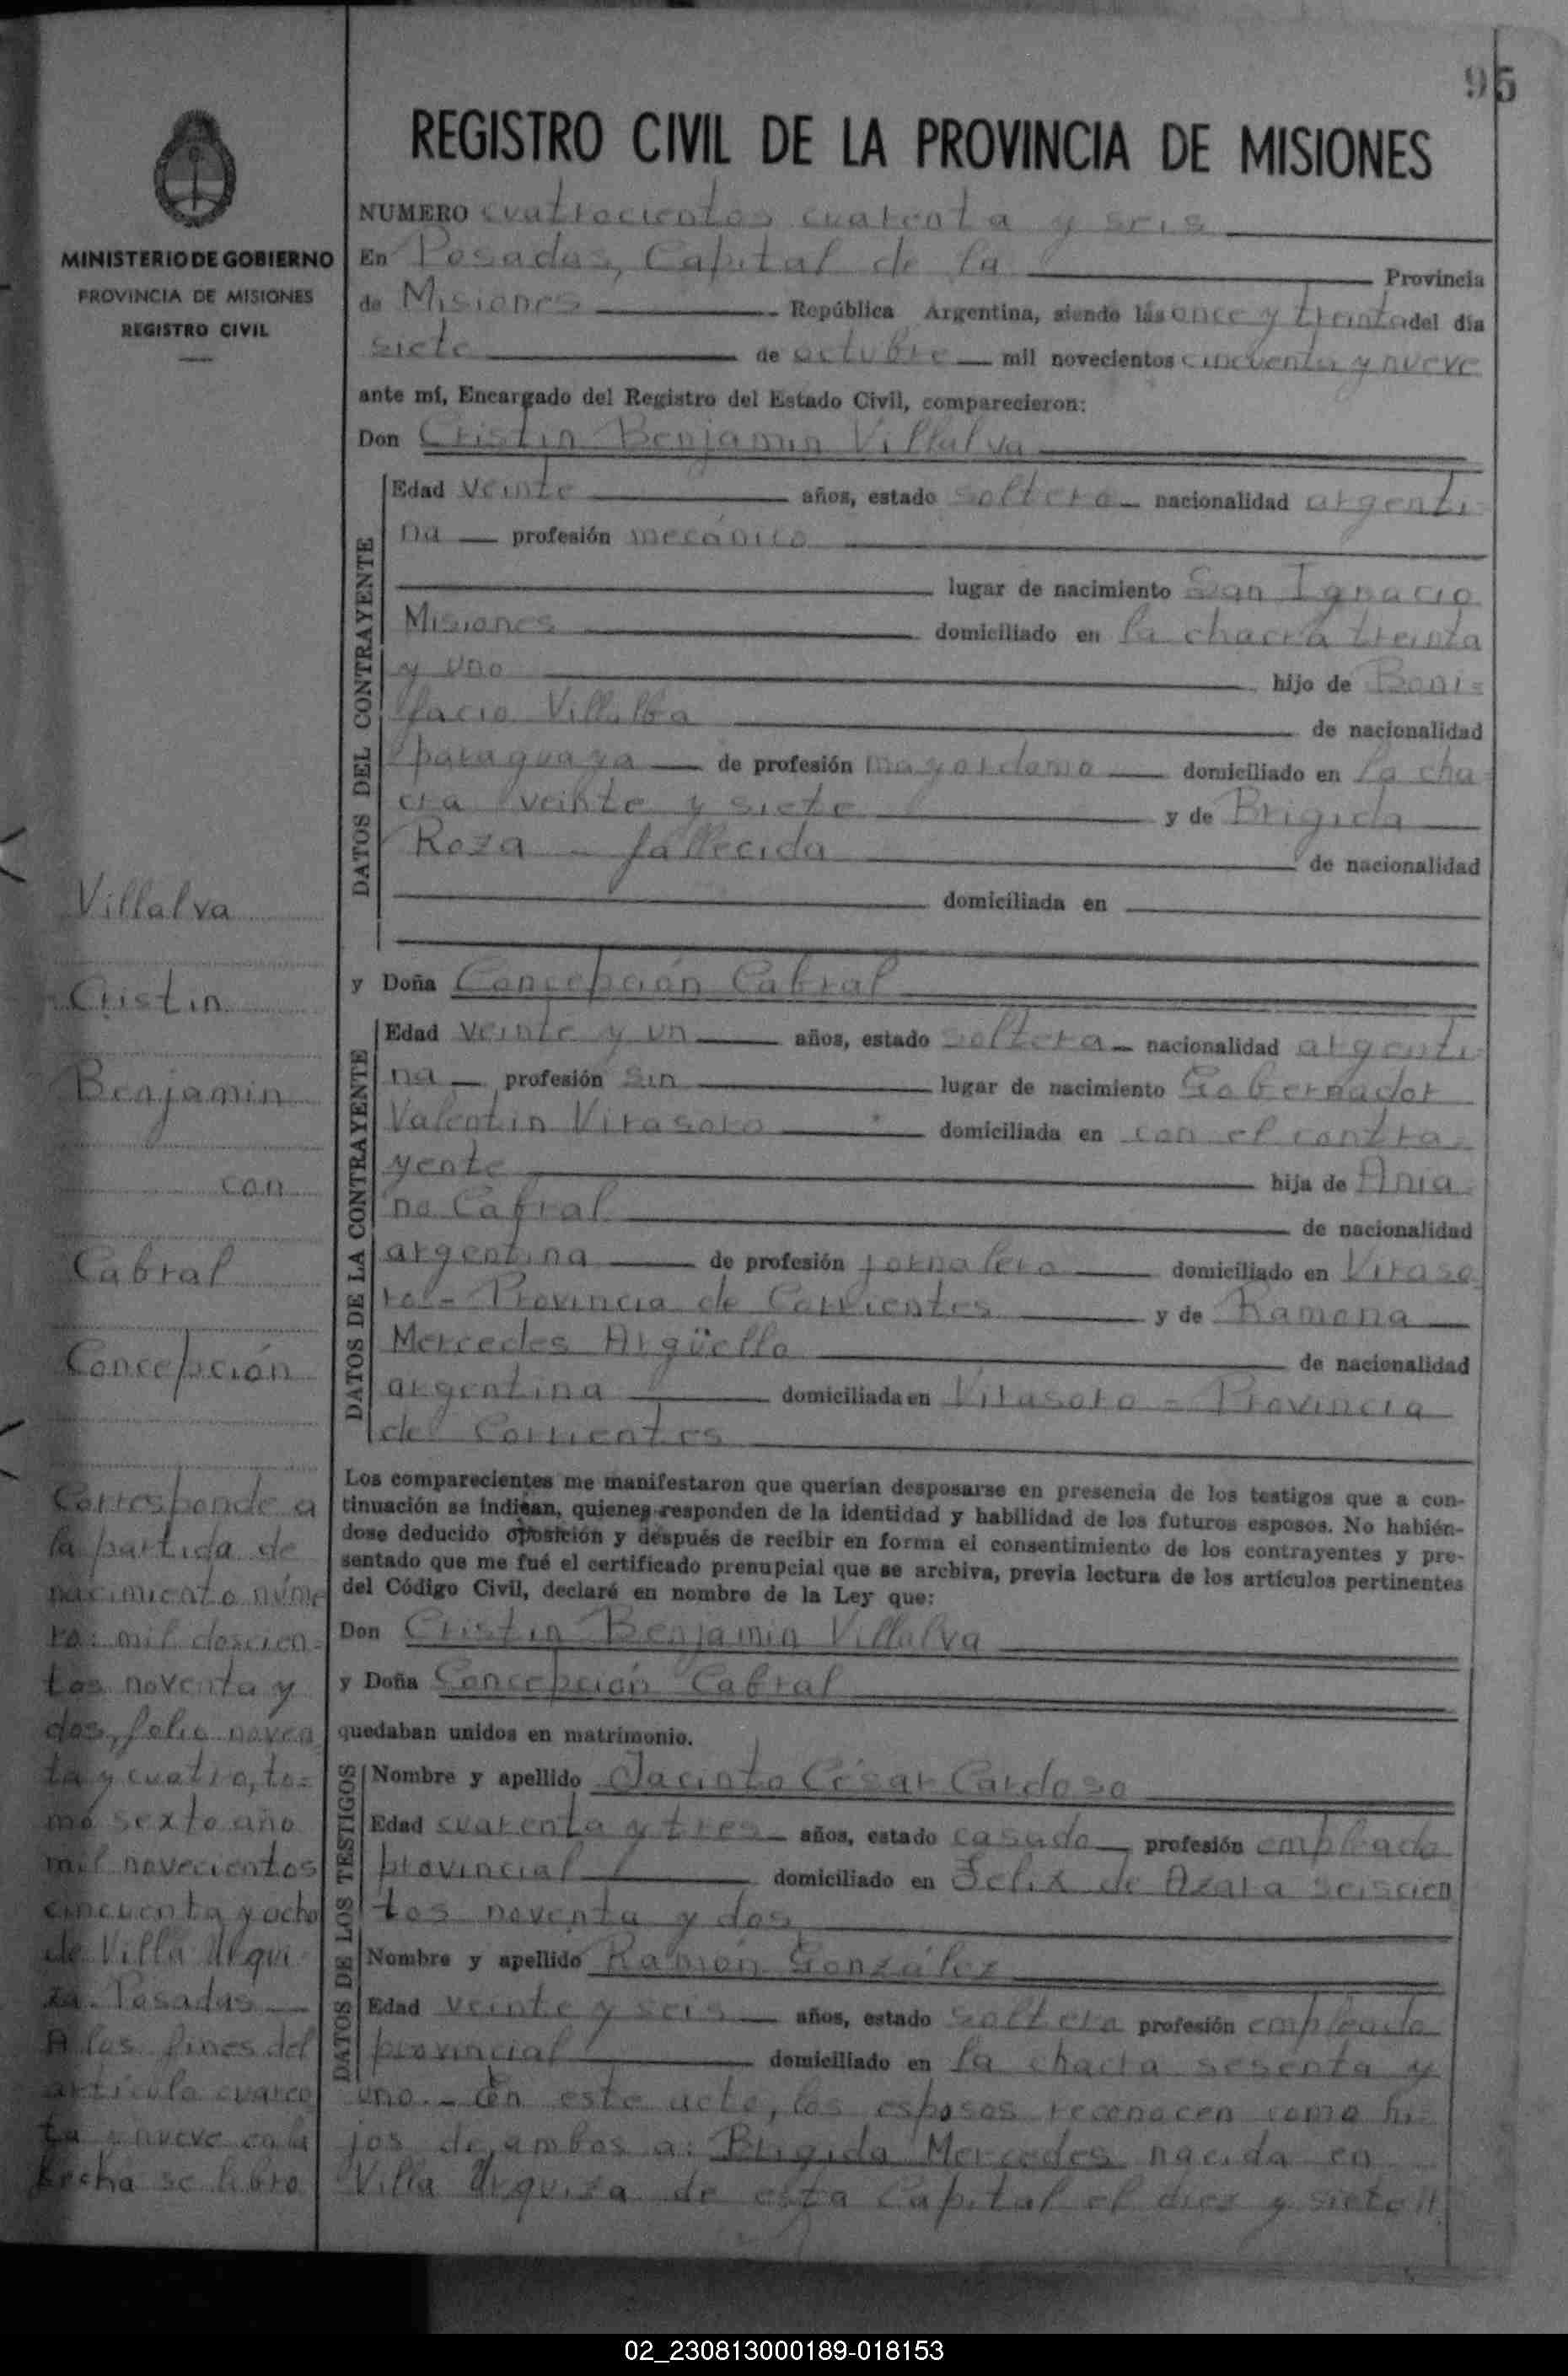 95
REGISTRO CIVIL DE LA PROVINCIA DE MISIONES
MINISTERIO DE GOBIERNO
PROVINCIA DE MISIONES
REGISTRO CIVIL
NUMERO cuatrocientos cuarenta y seis
En Posadas, Capital de la Provincia
de Misiones República Argentina, siendo las once y treinta del día
siete de octubre mil novecientos cincuenta y nueve
ante mí, Encargado del Registro del Estado Civil, comparecieron:
Don Cristin Benjamin Villalva
DATOS DEL CONTRAYENTE
Edad veinte años, estado soltero nacionalidad argenti
na profesión mecánico
lugar de nacimiento San Ignacio
Misiones domiciliado en la chacra treinta
y uno hijo de Boni=
facio Villalba de nacionalidad
paraguaya de profesión mayordomo domiciliado en la cha
cra veinte y siete y de Brigida
Roza - fallecida de nacionalidad
domiciliada en
y Doña Concepción Cabral
DATOS DE LA CONTRAYENTE
Edad veinte y un años, estado soltera nacionalidad argenti
na profesión sin lugar de nacimiento Gobernador
Valentin Virasoro domiciliada en con el contra
yente hija de Ania
no Cabral de nacionalidad
argentina de profesión jornalero domiciliado en Viraso
ro - Provincia de Corrientes y de Ramona
Mercedes Argüello de nacionalidad
argentina domiciliada en Virasoro - Provincia
de Corrientes
Los comparecientes me manifestaron que querían desposarse en presencia de los testigos que a con-
tinuación se indican, quienes responden de la identidad y habilidad de los futuros esposos. No habién-
dose deducido oposición y después de recibir en forma el consentimiento de los contrayentes y pre-
sentado que me fué el certificado prenupcial que se archiva, previa lectura de los artículos pertinentes
del Código Civil, declaré en nombre de la Ley que:
Don Cristin Benjamin Villalva
y Doña Concepción Cabral
quedaban unidos en matrimonio.
DATOS DE LOS TESTIGOS
Nombre y apellido Jacinto César Cardoso
Edad cuarenta y tres años, estado casado profesión empleado
provincial domiciliado en Felix de Azara seiscien
tos noventa y dos
Nombre y apellido Ramón González
Edad veinte y seis años, estado soltero profesión empleado
provincial domiciliado en la chacra sesenta y
uno.- En este acto, los esposos reconocen como hi=
jos de ambos a: Brigida Mercedes nacida en
Villa Urquiza de esta Capital el diez y siete //
Villalva
Cristin
Benjamin
con
Cabral
Concepción
Corresponde a
la partida de
nacimiento núme
ro: mil doscien=
tos noventa y
dos, folio noven
ta y cuatro, to=
mo sexto año
mil novecientos
cincuenta y ocho
de Villa Urqui
za. Posadas
A los fines del
artículo cuaren
ta y nueve en la
fecha se libró
02_230813000189-018153